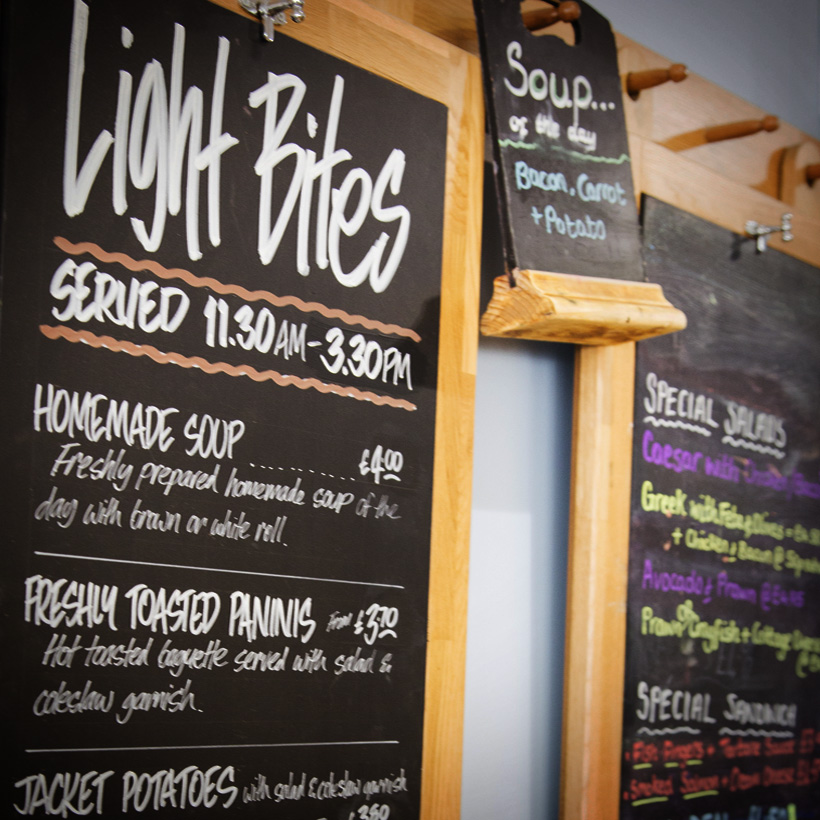 Light Bites
SERVED 11.30AM-3.30PM
HOMEMADE SOUP £4.00
Freshly prepared homemade soup of the
day with brown or white roll.
FRESHLY TOASTED PANINIS from £3.70
Hot toasted baguette served with salad &
coleslaw garnish.
JACKET POTATOES with salad & coleslaw garnish
£3.80
Soup...
of the day
Bacon, Carrot
+ Potato
SPECIAL SALADS
Caesar with
Greek with Feta & Olives
+ Chicken & Bacon @
Avocado & Prawn @ £4.95
Prawn or Crayfish + Cottage
SPECIAL SANDWICH
• Fish Fingers + Tartare Sauce
• Smoked Salmon + Cream Cheese